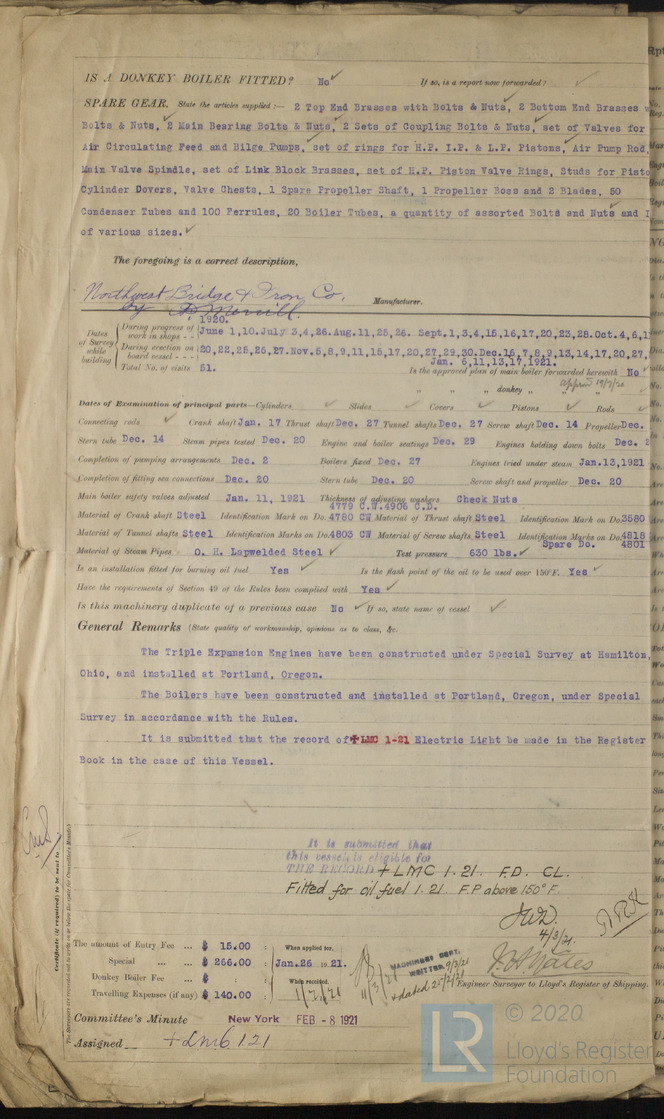 IS A DONKEY BOILER FITTED? No ✓ If so, is a report now forwarded? ✓
SPARE GEAR. State the articles supplied :— 2 Top End Brasses with Bolts & Nuts, 2 Bottom End Brasses
Bolts & Nuts, 2 Main Bearing Bolts & Nuts, 2 Sets of Coupling Bolts & Nuts, set of Valves for
Air Circulating Feed and Bilge Pumps, set of rings for H.P. I.P. & L.P. Pistons, Air Pump Rod,
Main Valve Spindle, set of Link Block Brasses, set of H.P. Piston Valve Rings, Studs for Pisto
Cylinder Dovers, Valve Chests, 1 Spare Propeller Shaft, 1 Propeller Boss and 2 Blades, 50
Condenser Tubes and 100 Ferrules, 20 Boiler Tubes, a quantity of assorted Bolts and Nuts and I
of various sizes. ✓
The foregoing is a correct description,
Northwest Bridge & Iron Co. Manufacturer.
by Merrill.
1920.
Dates of Survey while building
During progress of work in shops - - June 1,10. July 3,4,26. Aug.11,25,26. Sept.1,3,4,15,16,17,20,23,28. Oct.4,6,1
During erection on board vessel - - - 20,22,25,26,27. Nov.5,8,9,11,15,17,20,27,29,30. Dec.15,7,8,9,13,14,17,20,27,
Jan. 6,11,13,17,1921.
Total No. of visits 51. Is the approved plan of main boiler forwarded herewith No ✓
" " " donkey " "
Dates of Examination of principal parts—Cylinders ✓ Slides ✓ Covers ✓ Pistons ✓ Rods ✓
Connecting rods ✓ Crank shaft Jan. 17 Thrust shaft Dec. 27 Tunnel shafts Dec. 27 Screw shaft Dec. 14 Propeller Dec.
Stern tube Dec. 14 Steam pipes tested Dec. 20 Engine and boiler seatings Dec. 29 Engines holding down bolts Dec. 2
Completion of pumping arrangements Dec. 2 Boilers fixed Dec. 27 Engines tried under steam Jan.13,1921
Completion of fitting sea connections Dec. 20 Stern tube Dec. 20 Screw shaft and propeller Dec. 20
Main boiler safety valves adjusted Jan. 11, 1921 Thickness of adjusting washers Check Nuts
4779 C.W.4906 C.D.
Material of Crank shaft Steel Identification Mark on Do. 4780 CW Material of Thrust shaft Steel Identification Mark on Do. 3580
Material of Tunnel shafts Steel Identification Marks on Do. 4803 CW Material of Screw shafts Steel Identification Marks on Do. 4818
Spare Do. 4801
Material of Steam Pipes O. H. Lapwelded Steel ✓ Test pressure 630 lbs. ✓
Is an installation fitted for burning oil fuel Yes ✓ Is the flash point of the oil to be used over 150°F. Yes ✓
Have the requirements of Section 49 of the Rules been complied with Yes ✓
Is this machinery duplicate of a previous case No ✓ If so, state name of vessel ✓
General Remarks (State quality of workmanship, opinions as to class, &c.
The Triple Expansion Engines have been constructed under Special Survey at Hamilton,
Ohio, and installed at Portland, Oregon.
The Boilers have been constructed and installed at Portland, Oregon, under Special
Survey in accordance with the Rules.
It is submitted that the record of +LMC 1-21 Electric Light be made in the Register
Book in the case of this Vessel.
It is submitted that
this vessel is eligible for
THE RECORD + LMC 1.21. F.D. CL.
Fitted for oil fuel 1.21 F.P. above 150°F.
4/3/21.
The amount of Entry Fee ... $ 15.00 : When applied for,
Special ... ... $ 266.00 : Jan.26 1921.
Donkey Boiler Fee ... $ : When received,
Travelling Expenses (if any) $ 140.00 : 1/2/21
11/3/21
MACHINERY DEPT.
WRITTEN 9/3/21
Engineer Surveyor to Lloyd's Register of Shipping.
Committee's Minute New York FEB -8 1921
Assigned + LMC 1 21
Certificate (if required) to be sent to
The Surveyors are requested not to write on or below the space for Committee's Minute.
LR
© 2020
Lloyd's Register
Foundation